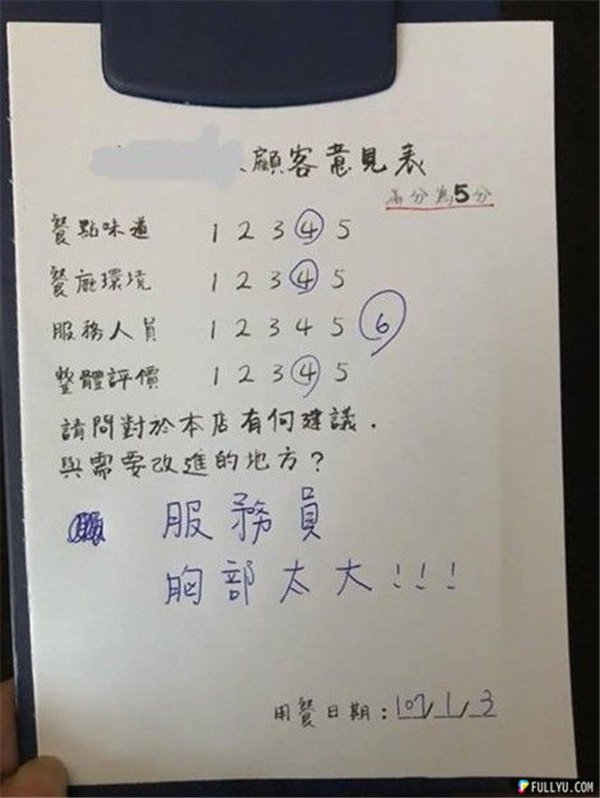 顧客意見表
滿分為5分
餐點味道 1 2 3 4 5
餐廳環境 1 2 3 4 5
服務人員 1 2 3 4 5 6
整體評價 1 2 3 4 5
請問對於本店有何建議，
與需要改進的地方？
服務員
胸部太大!!!
用餐日期：107/1/3
FULLYU.COM